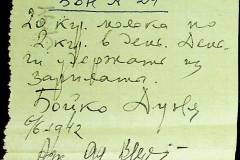 БОН № 24
20 кг. молока по
2 кг. в день. День-
ги удержать из
зарплаты.
Бойко Дуня
6/6 1942